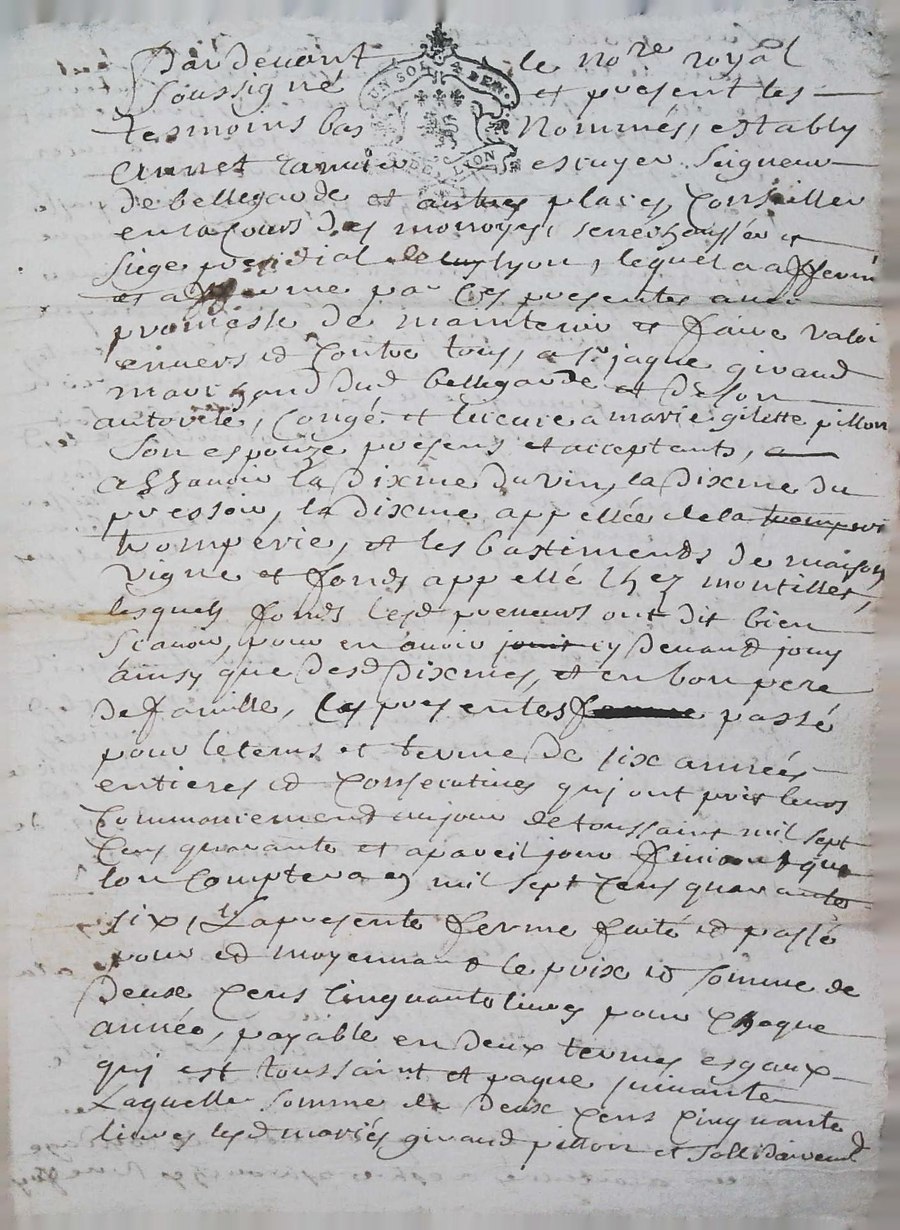 Pardevant le nore royal
UN SOL 4 DEN.
DE LION
Soussigné et present les
tesmoins bas Nommés, estably
Annet escuyer Seigneur
de bellegarde et autres places, Conseiller
en la Cours des monoyes, senechaussée et
siege presidial de lyon, lequel a affermé
et afferme par Ces presentes avec
promesse de maintenir et faire valoir
envers et Contre tous, a Sr jaque giraud
marchand dud bellegarde et de son
autorité, Congé et licence a marie gilette pillon
Son espouze presens et acceptants, a
assavoir la Dixme du vin, la Dixme du
pressoir, la dixme appellée de la tromperi
tromperie, et les bastiments de maison
vigne et fonds appellé Chez montillet,
lesquels fonds lesd preneurs ont dit bien
scavoir, pour en avoir jouit cy Devand jouy
ainsy que Desd Dixmes, et en bon pere
de famille, les presentes ferme passé
pour le tems et terme De six années
entieres et Consecutives quj ont pris leurs
Commancement aujour de toussaint mil sept
Cens quarante et apareil jour finiront que
lon Comptera mil sept Cens quarante
six, la presente ferme faité et passé
pour et moyennand le prix et somme de
Deux Cens Cinquante livres pour Chaque
année, payable en deux termes esgaux
quj est toussaint et paque suivante
Laquelle somme de Deux Cens Cinquante
livres lesd mariés giraud pillon et sollidairemend